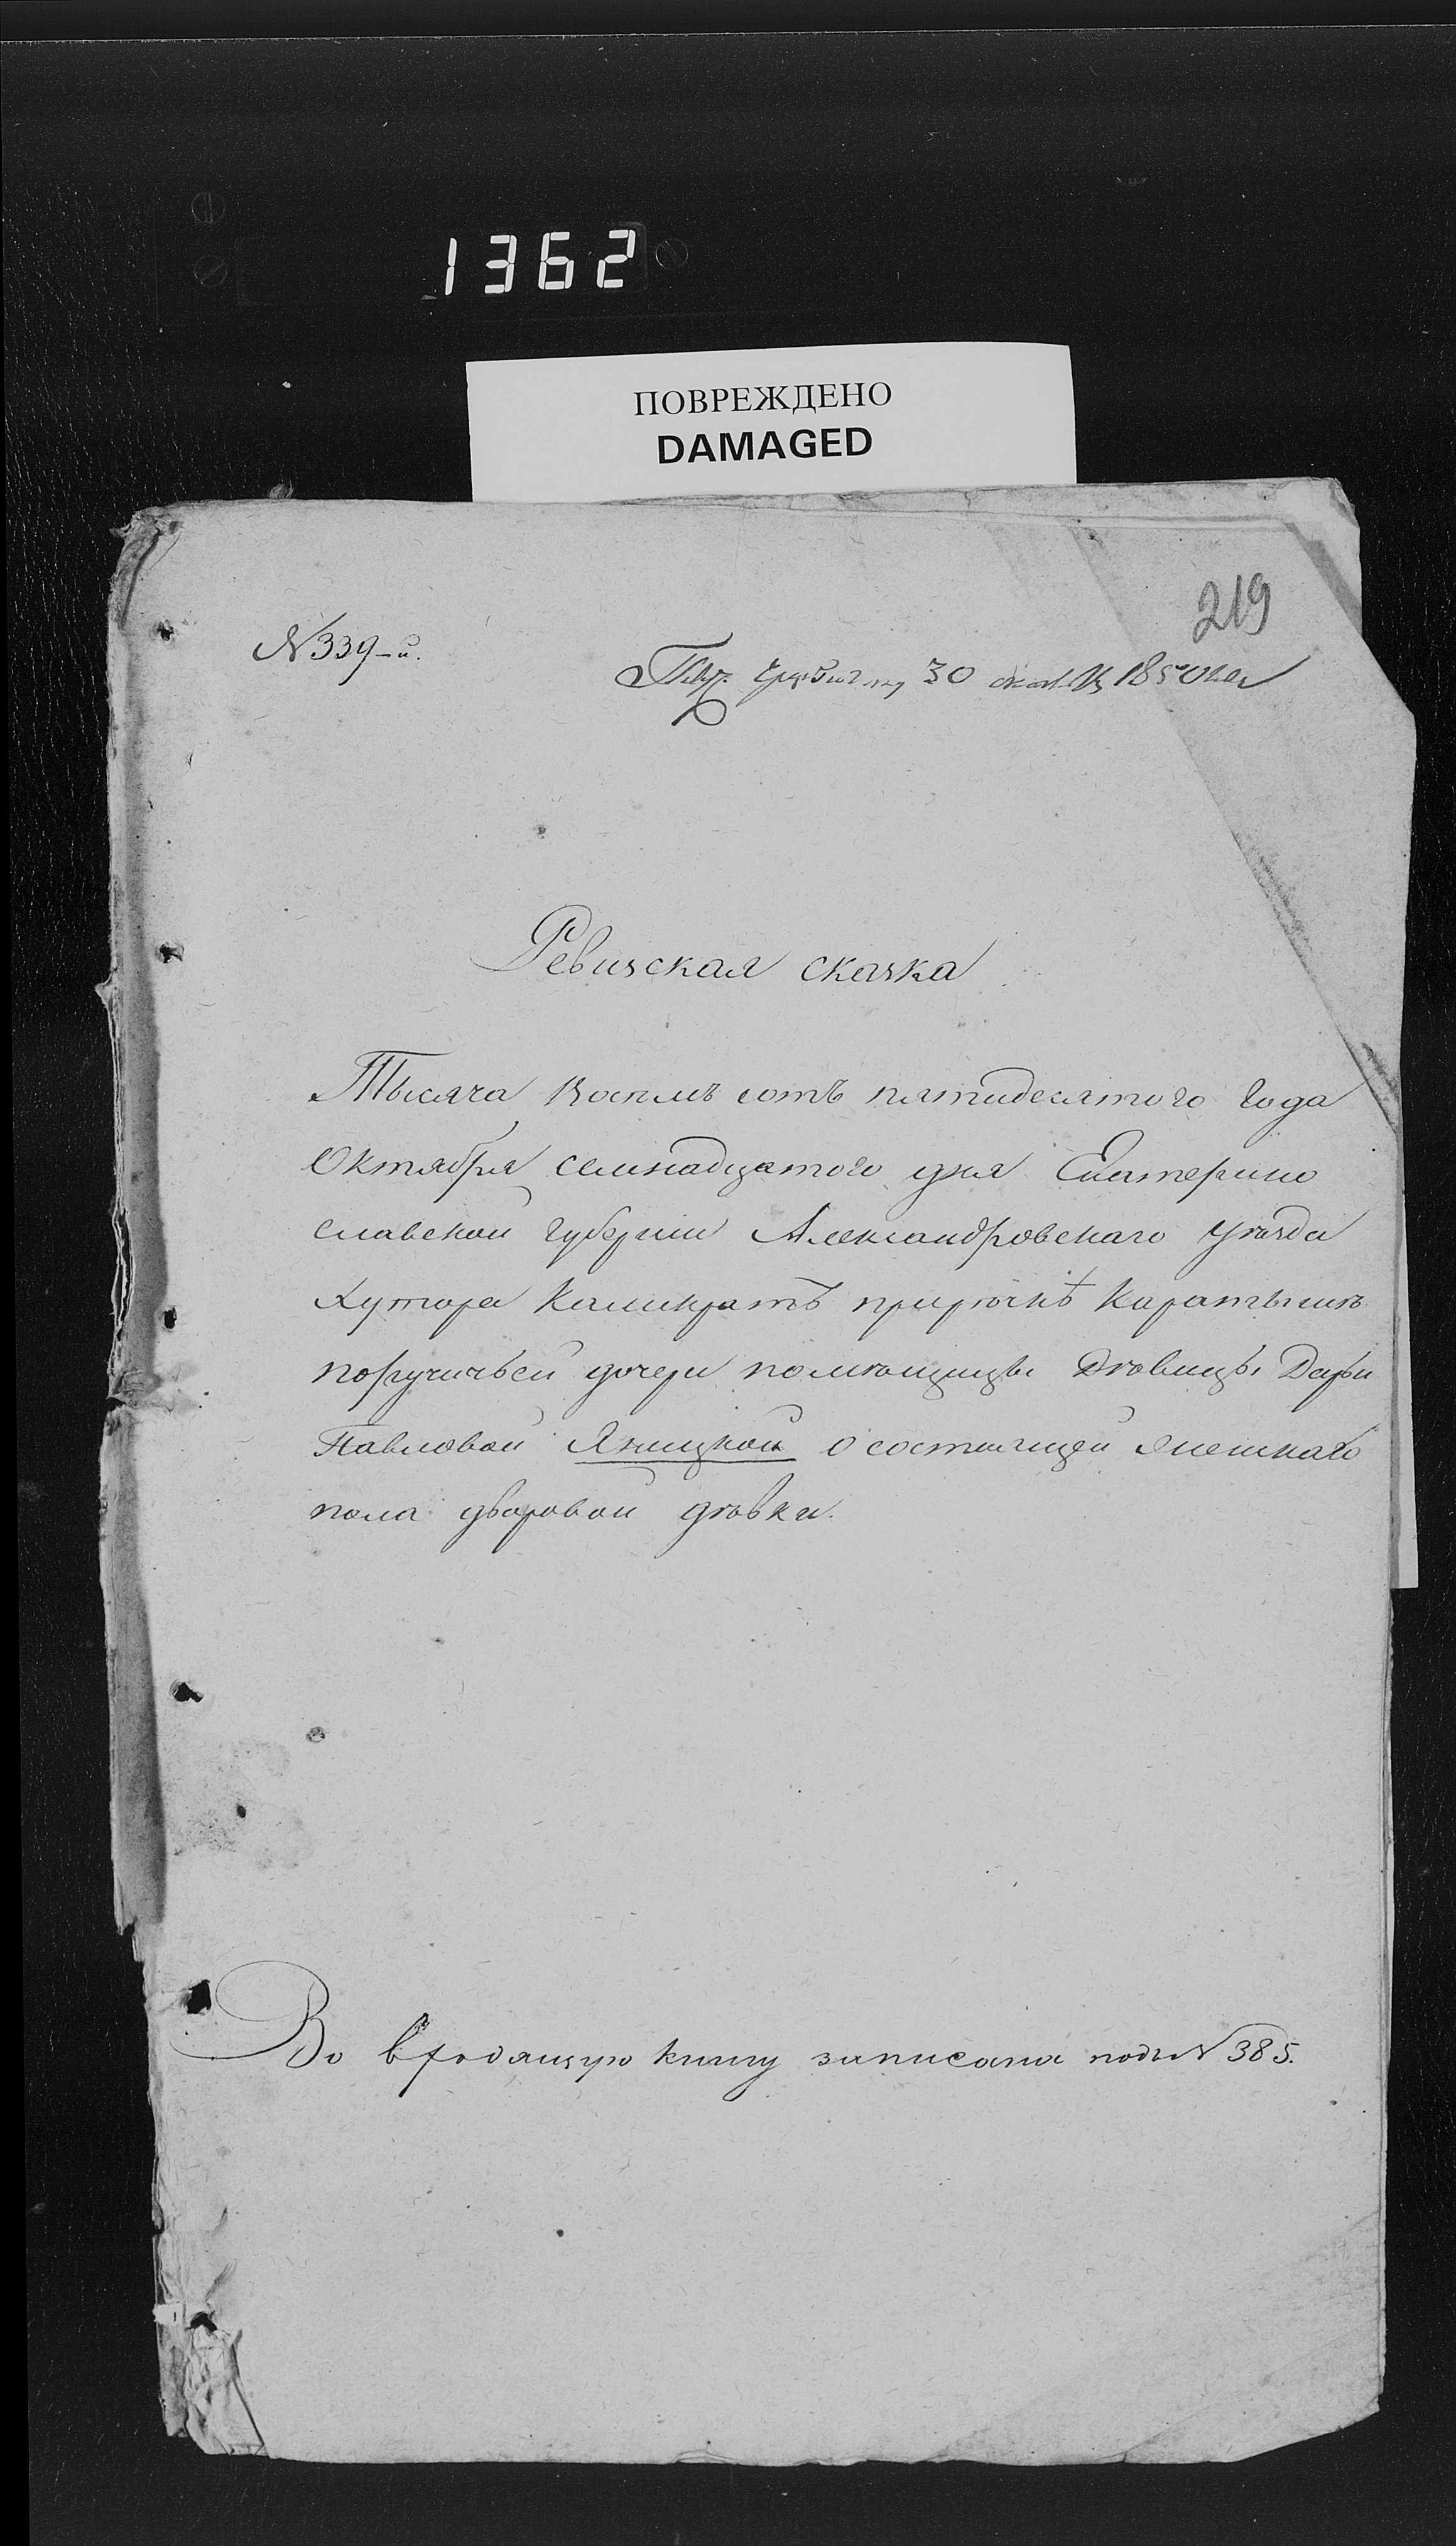 1362
ПОВРЕЖДЕНО
DAMAGED
219
№ 339-й.
30 1850 года
Ревизская сказка
Тысяча восемь сотъ пятидесятого года
Октября семнадцатого дня Екатерино
славской губернии Александровскаго уѣзда
хутора прирѣчкѣ Каратышѣ
поручичьей дочери помѣщицы Дѣвицы Дарьи
Павловой Яницкой о состоящей женскаго
пола дворовой дѣвки.
Во входящую книгу записана подъ № 385.